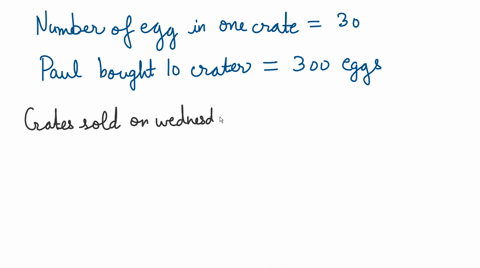 Number of egg in one crate = 30
Paul bought 10 crater = 300 eggs
Crates sold on wednesd